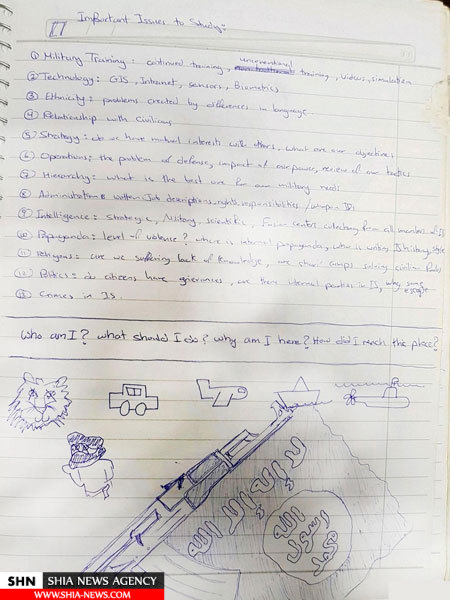 17
Important Issues to Study:
① Military Training: continued training, unconventional training, videos, simulation
② Technology: GIS, Intranet, sensors, Biometrics
③ Ethnicity: problems created by differences in language.
④ Relationship with Civilians
⑤ Strategy: do we have mutual interests with others, what are our objectives
⑥ Operations: the problem of defense, impact of air power, review of our tactics
⑦ Hierarchy: what is the best one for our military needs
⑧ Administration: written Job descriptions, rights, responsibilities / weapon IDs
⑨ Intelligence: strategic, Military, scientific, Fusion center collecting from all members of IS
⑩ Propaganda: level of violence? where is internal propaganda, who is writing IS history, style
⑪ Religious: are we suffering lack of knowledge, are sharii camps solving civilian
⑫ Politics: do citizens have grievances, are there internal parties in IS, why some escape
⑬ Crimes in IS.
Who am I? What should I do? why am I here? How did I reach this place?
لا إله إلا الله
الله
رسول
محمد
SHN SHIA NEWS AGENCY
WWW.SHIA-NEWS.COM